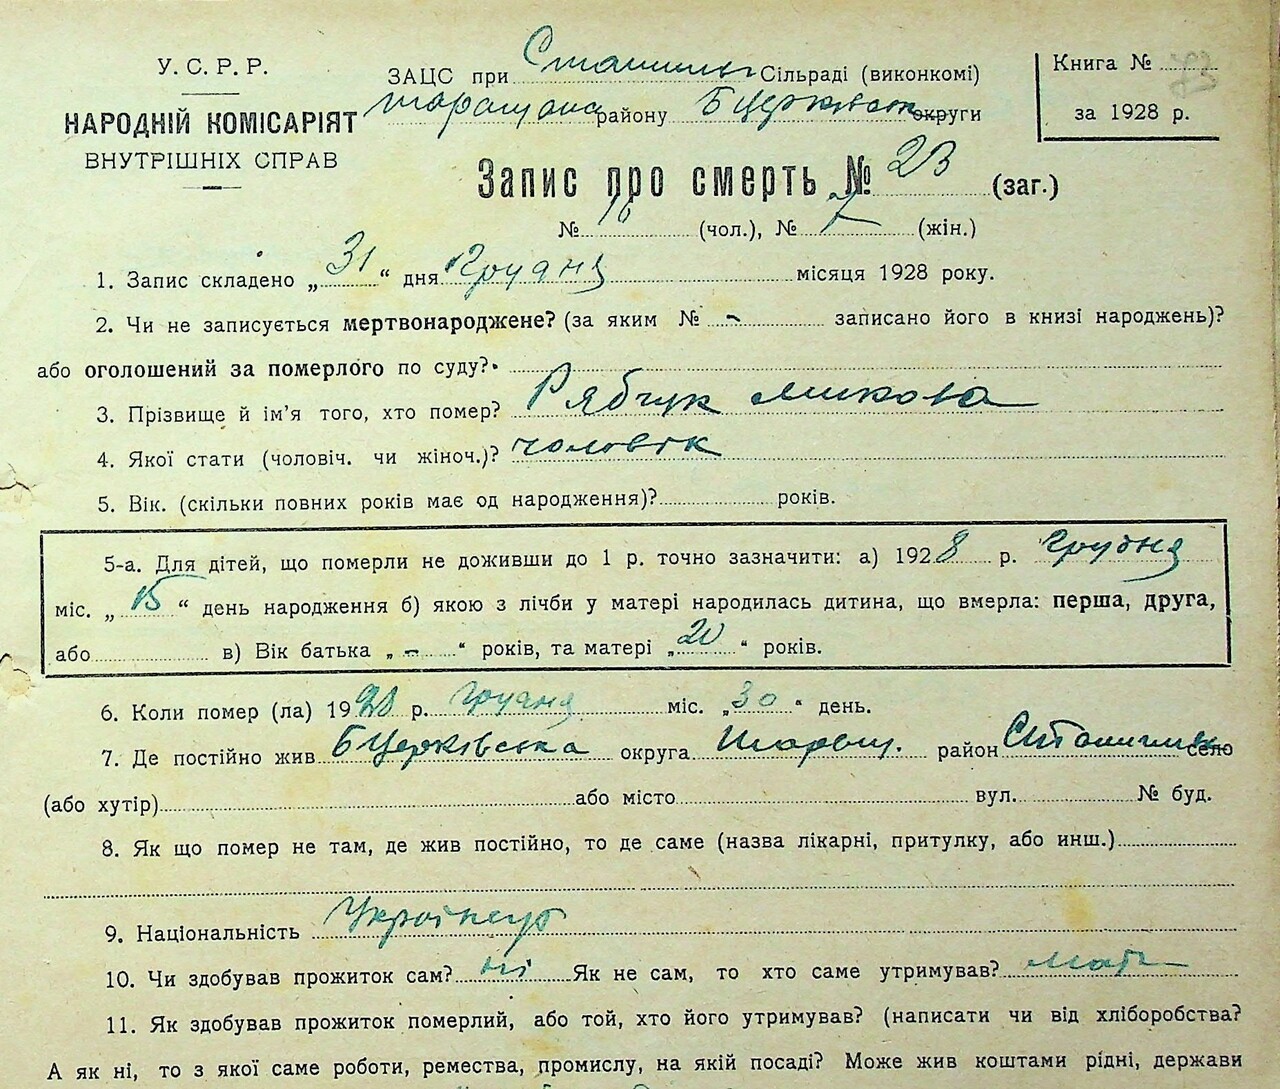 У. С. Р. Р.
НАРОДНІЙ КОМІСАРІЯТ
ВНУТРІШНІХ СПРАВ
ЗАЦС при Сільраді (виконкомі)
району Б Церківськ округи
Книга №
за 1928 р.
Запис про смерть № 23 (заг.)
№ 16 (чол.), № 7 (жін.)
1. Запис складено „ 31 “ дня Грудня місяця 1928 року.
2. Чи не записується мертвонароджене? (за яким № - записано його в книзі народжень)?
або оголошений за померлого по суду?
3. Прізвище й ім'я того, хто помер? Рябчук Микола
4. Якої стати (чоловіч. чи жіноч.)? чоловік
5. Вік. (скільки повних років має од народження)? років.
5-а. Для дітей, що померли не доживши до 1 р. точно зазначити: а) 1928 р. Грудня
міс. „ 15 “ день народження б) якою з лічби у матері народилась дитина, що вмерла: перша, друга,
або в) Вік батька „ - “ років, та матері „ 20 “ років.
6. Коли помер (ла) 1928 р. Грудня міс. „ 30 “ день.
7. Де постійно жив Б Церківська округа Таращ. район село
(або хутір) або місто вул. № буд.
8. Як що помер не там, де жив постійно, то де саме (назва лікарні, притулку, або инш.)
9. Національність Українець
10. Чи здобував прожиток сам? ні Як не сам, то хто саме утримував? мати
11. Як здобував прожиток померлий, або той, хто його утримував? (написати чи від хліборобства?
А як ні, то з якої саме роботи, ремества, промислу, на якій посаді? Може жив коштами рідні, держави